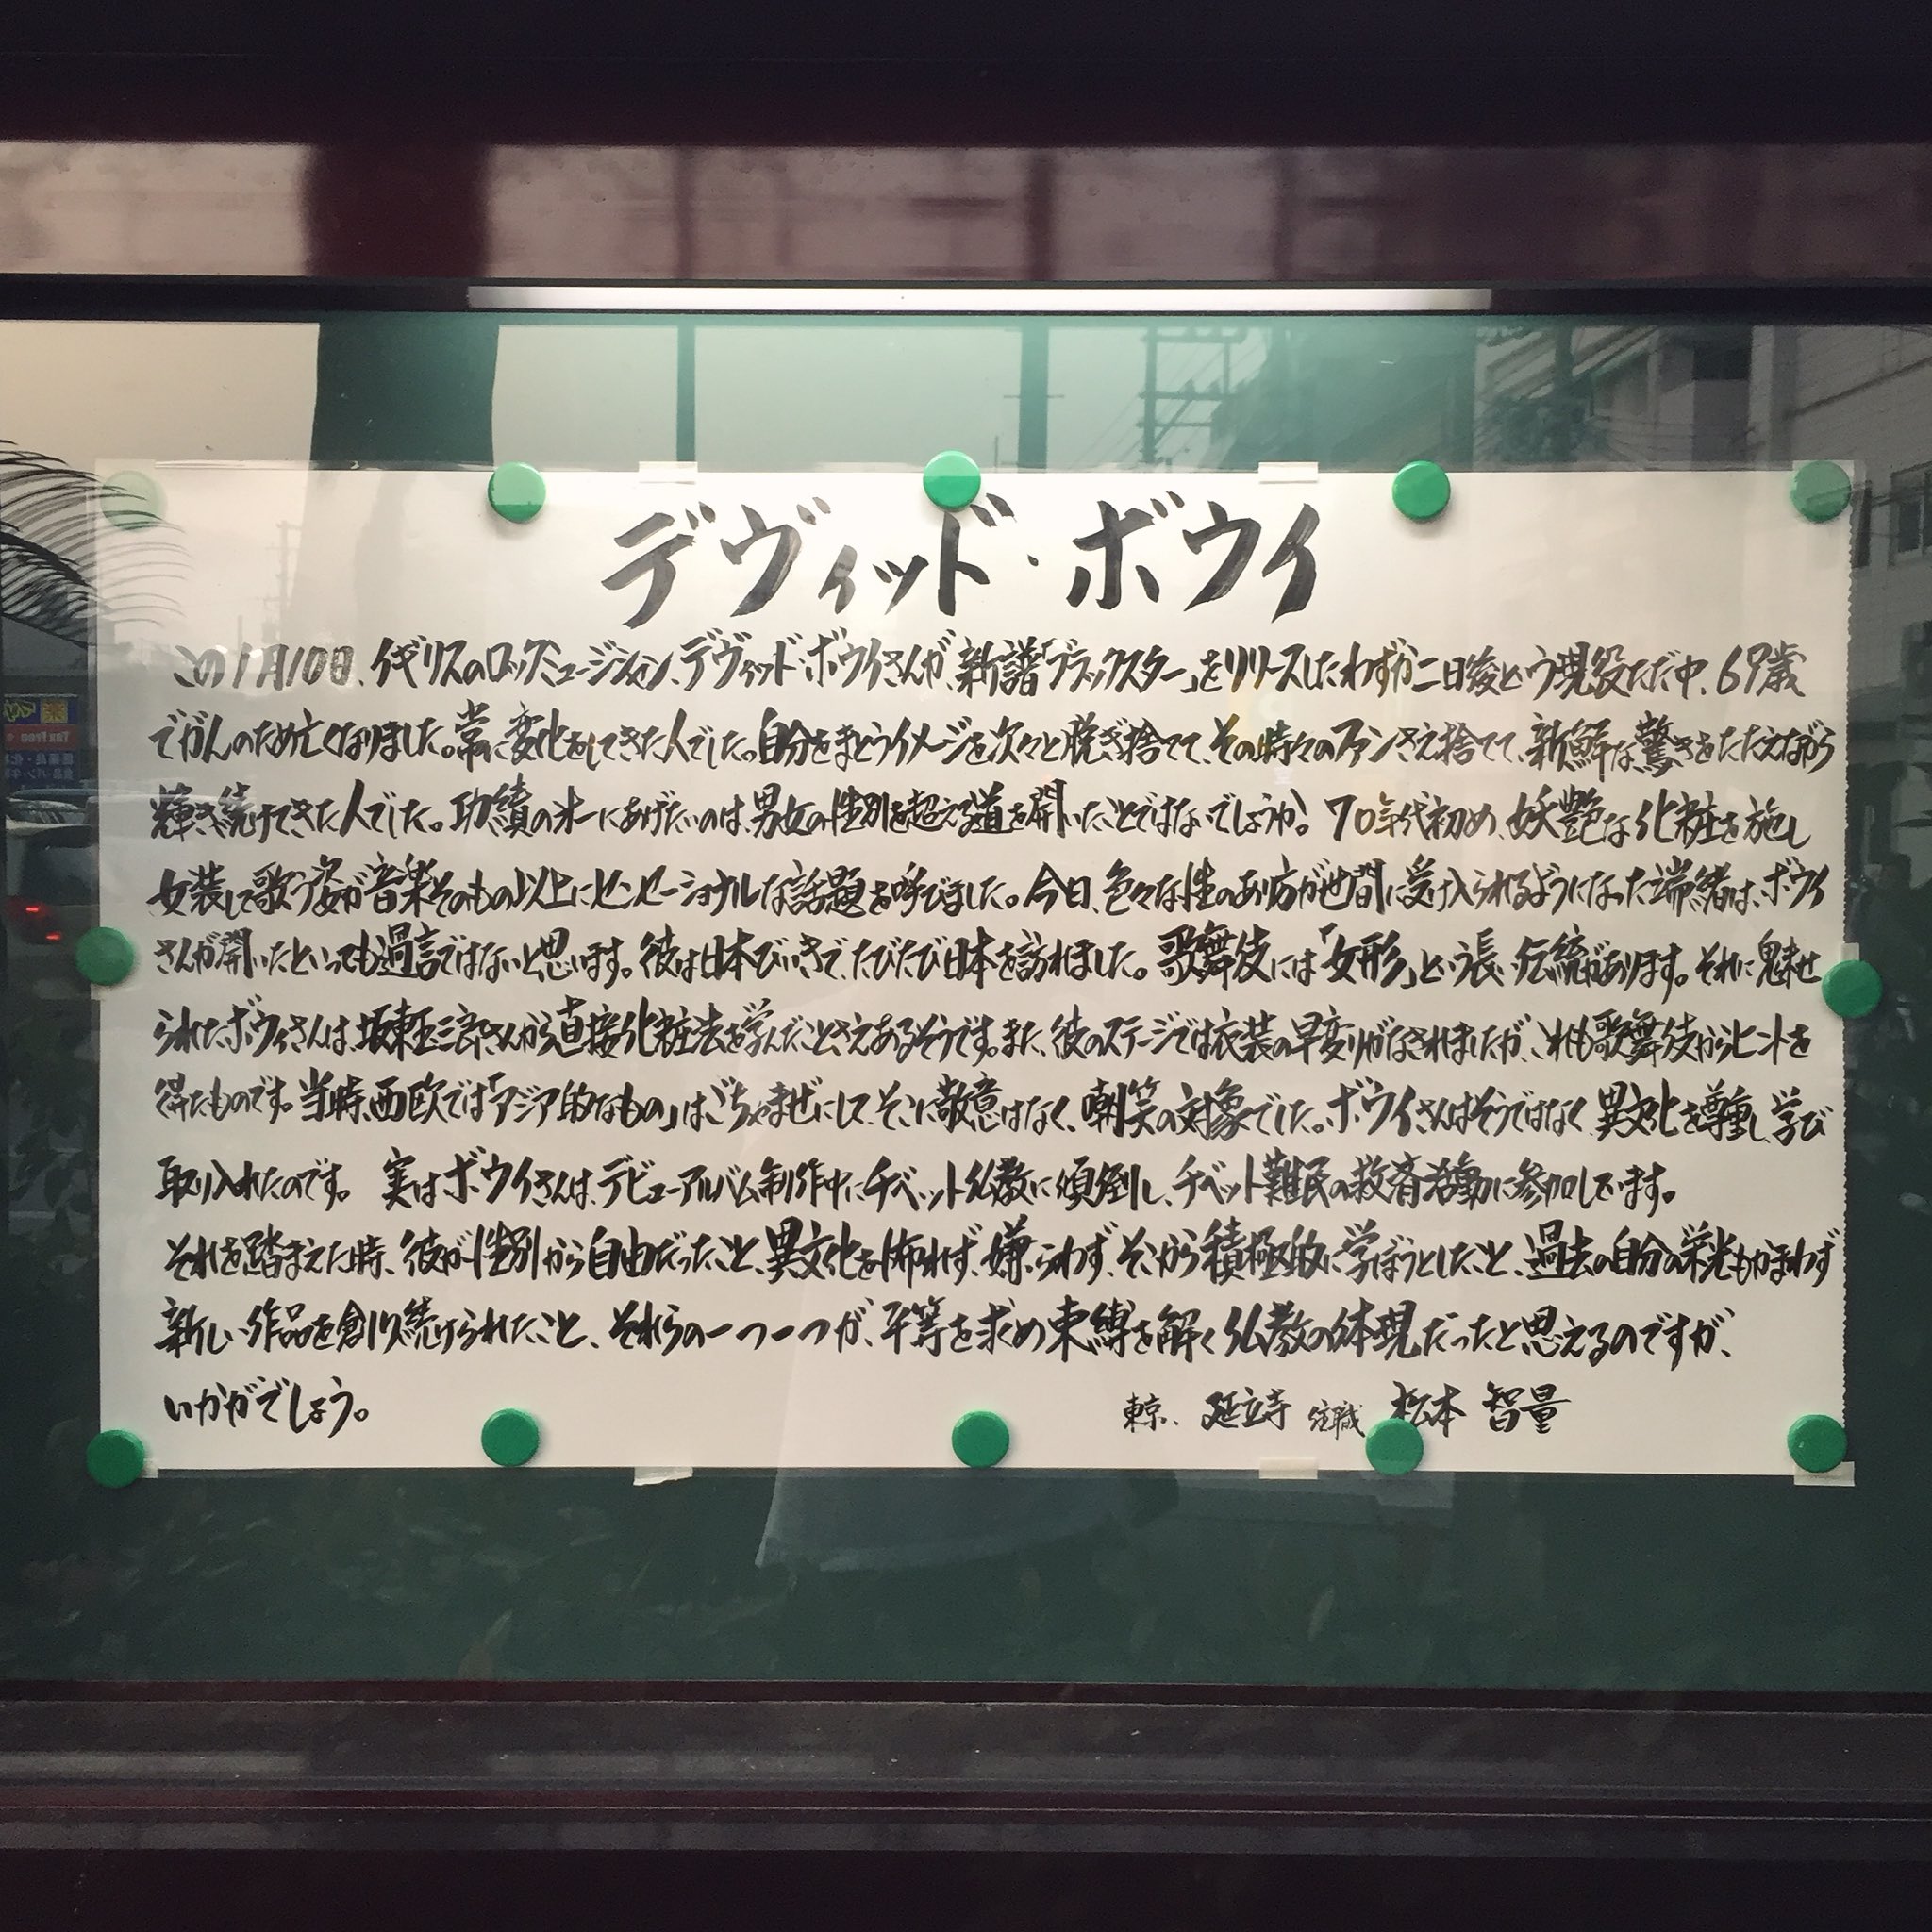 デヴィッド・ボウイ
この1月10日、イギリスのロックミュージシャン、デヴィッド・ボウイさんが、新譜「ブラックスター」をリリースしたわずか二日後という現役ただ中、69歳
でがんのため亡くなりました。常に変化をしてきた人でした。自分をまとうイメージを次々と脱ぎ捨てて、その時々のファンさえ捨てて、新鮮な驚きをたたえながら
輝き続けてきた人でした。功績の氺一にあげたいのは、男女の性別を超える道を開いたことではないでしょうか。70年代初め、妖艶な化粧を施し
女装して歌う姿が音楽そのもの以上にセンセーショナルな話題を呼びました。今日、色々な性のあり方が世間に受け入られるようになった端緒は、ボウイ
さんが開いたといっても過言ではないと思います。彼は日本びいきで、たびたび日本を訪れました。歌舞伎には「女形」という長い伝統があります。それに魅せ
られたボウイさんは、坂東玉三郎さんから直接化粧法を学んだことさえあるそうです。また、彼のステージでは衣装の早変りがなされましたが、これも歌舞伎からヒントを
得たものです。当時、西欧では「アジア的なもの」はごちゃまぜにして、そこに敬意はなく、嘲笑の対象でした。ボウイさんはそうではなく、異文化を尊重し、学び
取り入れたのです。 実はボウイさんは、デビューアルバム制作中にチベット仏教に傾倒し、チベット難民の救済活動に参加しています。
それを踏まえた時、彼が性別から自由だったこと、異文化を怖れず、嫌らわず、そこから積極的に学ぼうとしたこと、過去の自分の栄光もかまわず
新しい作品を創り続けられたこと、それらの一つ一つが、平等を求め束縛を解く仏教の体現だったと思えるのですが、
いかがでしょう。 東京、延立寺 住職 松本 智量
Tax Free